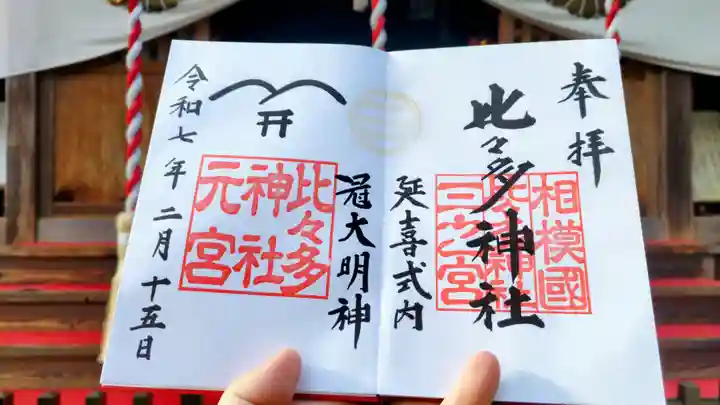 奉拝
相模國
比々多神社
三之宮
比々多神社
延喜式内
冠大明神
比々多
神社
元宮
令和七年二月十五日